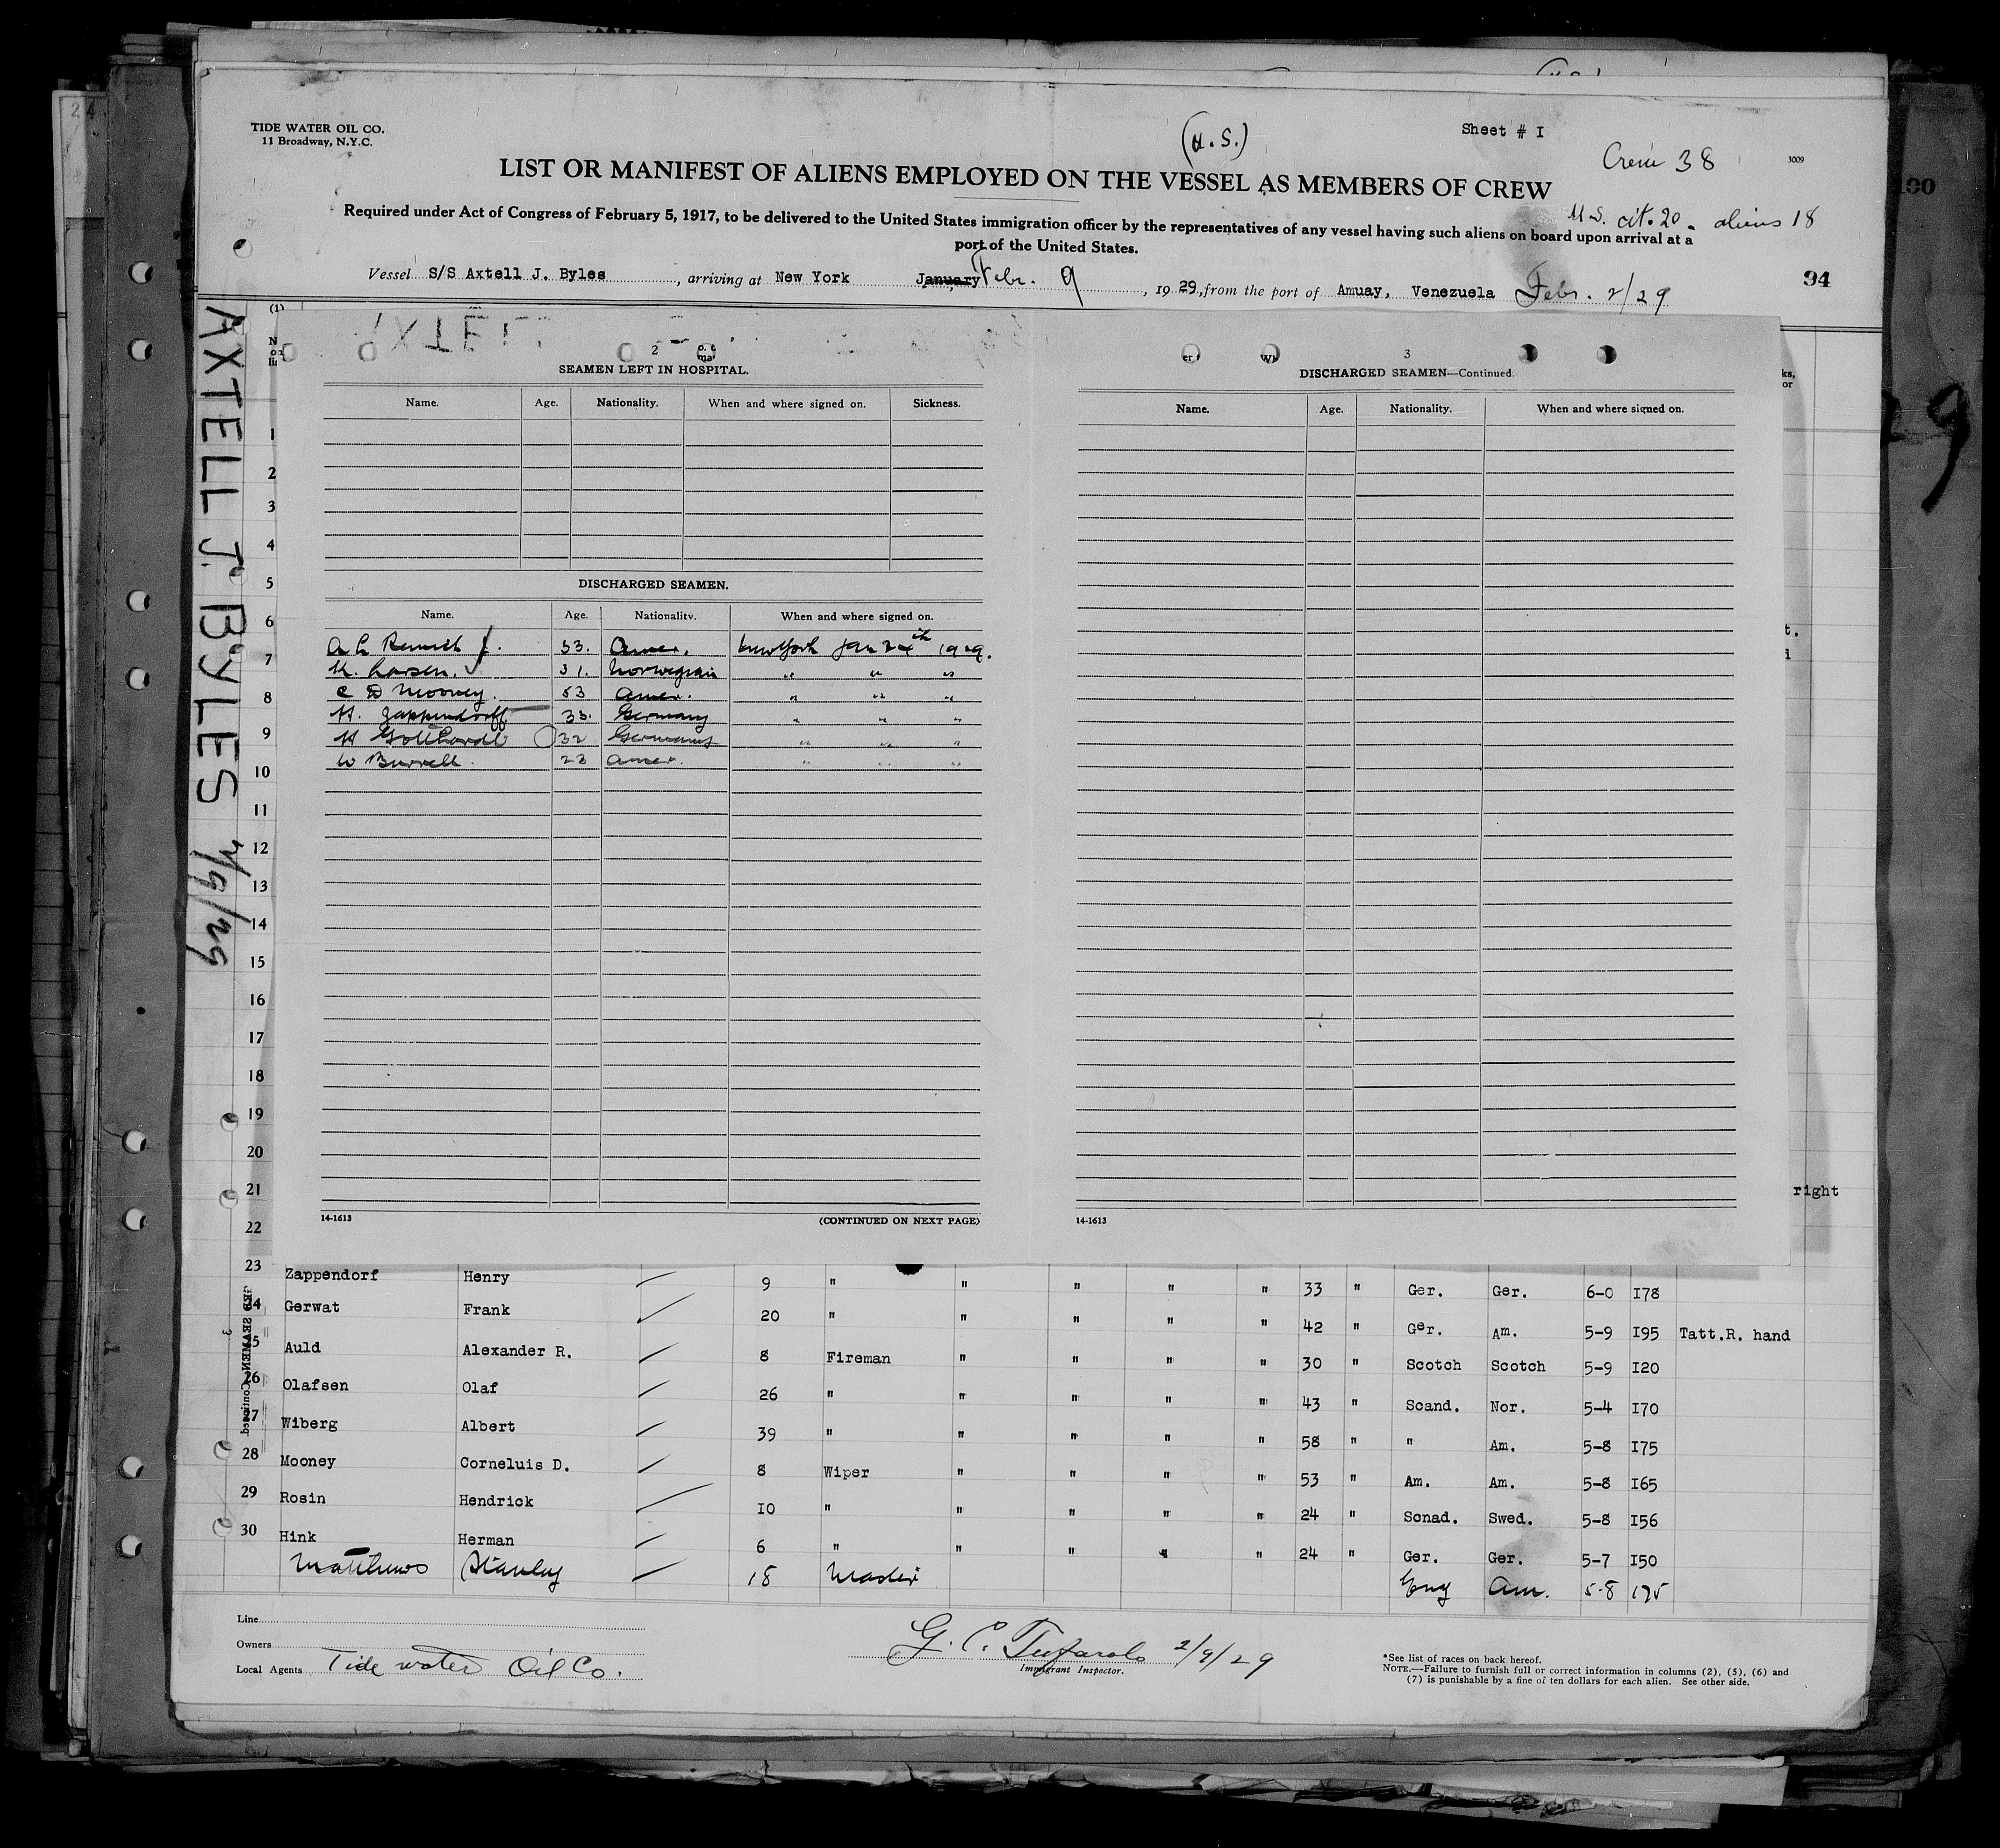 TIDE WATER OIL CO.
11 Broadway, N.Y.C.
Sheet # I
Crew 38
3009
LIST OR MANIFEST OF ALIENS EMPLOYED ON THE VESSEL AS MEMBERS OF CREW
Required under Act of Congress of February 5, 1917, to be delivered to the United States immigration officer by the representatives of any vessel having such aliens on board upon arrival at a
port of the United States.
U.S. cit. 20. aliens 18
Vessel S/S Axtell J. Byles, arriving at New York January Febr. 9, 1929, from the port of Amuay, Venezuela Febr. 2/29
94
AXTELL J. BYLES 2/9/29
2
SEAMEN LEFT IN HOSPITAL.
Name. Age. Nationality. When and where signed on. Sickness.
DISCHARGED SEAMEN.
Name. Age. Nationality. When and where signed on.
33. Amer. New York Jan 24th 1929.
K. Larsen. 31. Norwegian " " "
C D Mooney. 53 Amer. " " "
H. Zappendorff 33. Germany " " "
32 Germany " " "
W Burrell. 28 Amer. " " "
14-1613 (CONTINUED ON NEXT PAGE)
3
DISCHARGED SEAMEN—Continued.
Name. Age. Nationality. When and where signed on.
14-1613
1
2
3
4
5
6
7
8
9
10
11
12
13
14
15
16
17
18
19
20
21
right
22
23 Zappendorf Henry 9 " " " " " 33 " Ger. Ger. 6-0 I78
Gerwat Frank 20 " " " " " 42 " Ger. Am. 5-9 I95 Tatt.R. hand
Auld Alexander R. 8 Fireman " " " " 30 " Scotch Scotch 5-9 I20
26 Olafsen Olaf 26 " " " " " 43 " Scand. Nor. 5-4 I70
Wiberg Albert 39 " " " " " 58 " " Am. 5-8 I75
28 Mooney Corneluis D. 8 Wiper " " " " 53 " Am. Am. 5-8 I65
29 Rosin Hendrick IO " " " " " 24 " Scnad. Swed. 5-8 I56
30 Hink Herman 6 " " " " " 24 " Ger. Ger. 5-7 I50
Matthews Stanley 18 Master Eng Am. 5-8 175
Line
Owners
Local Agents Tide water Oil Co.
2/9/29
Immigrant Inspector.
*See list of races on back hereof.
NOTE.—Failure to furnish full or correct information in columns (2), (5), (6) and
(7) is punishable by a fine of ten dollars for each alien. See other side.